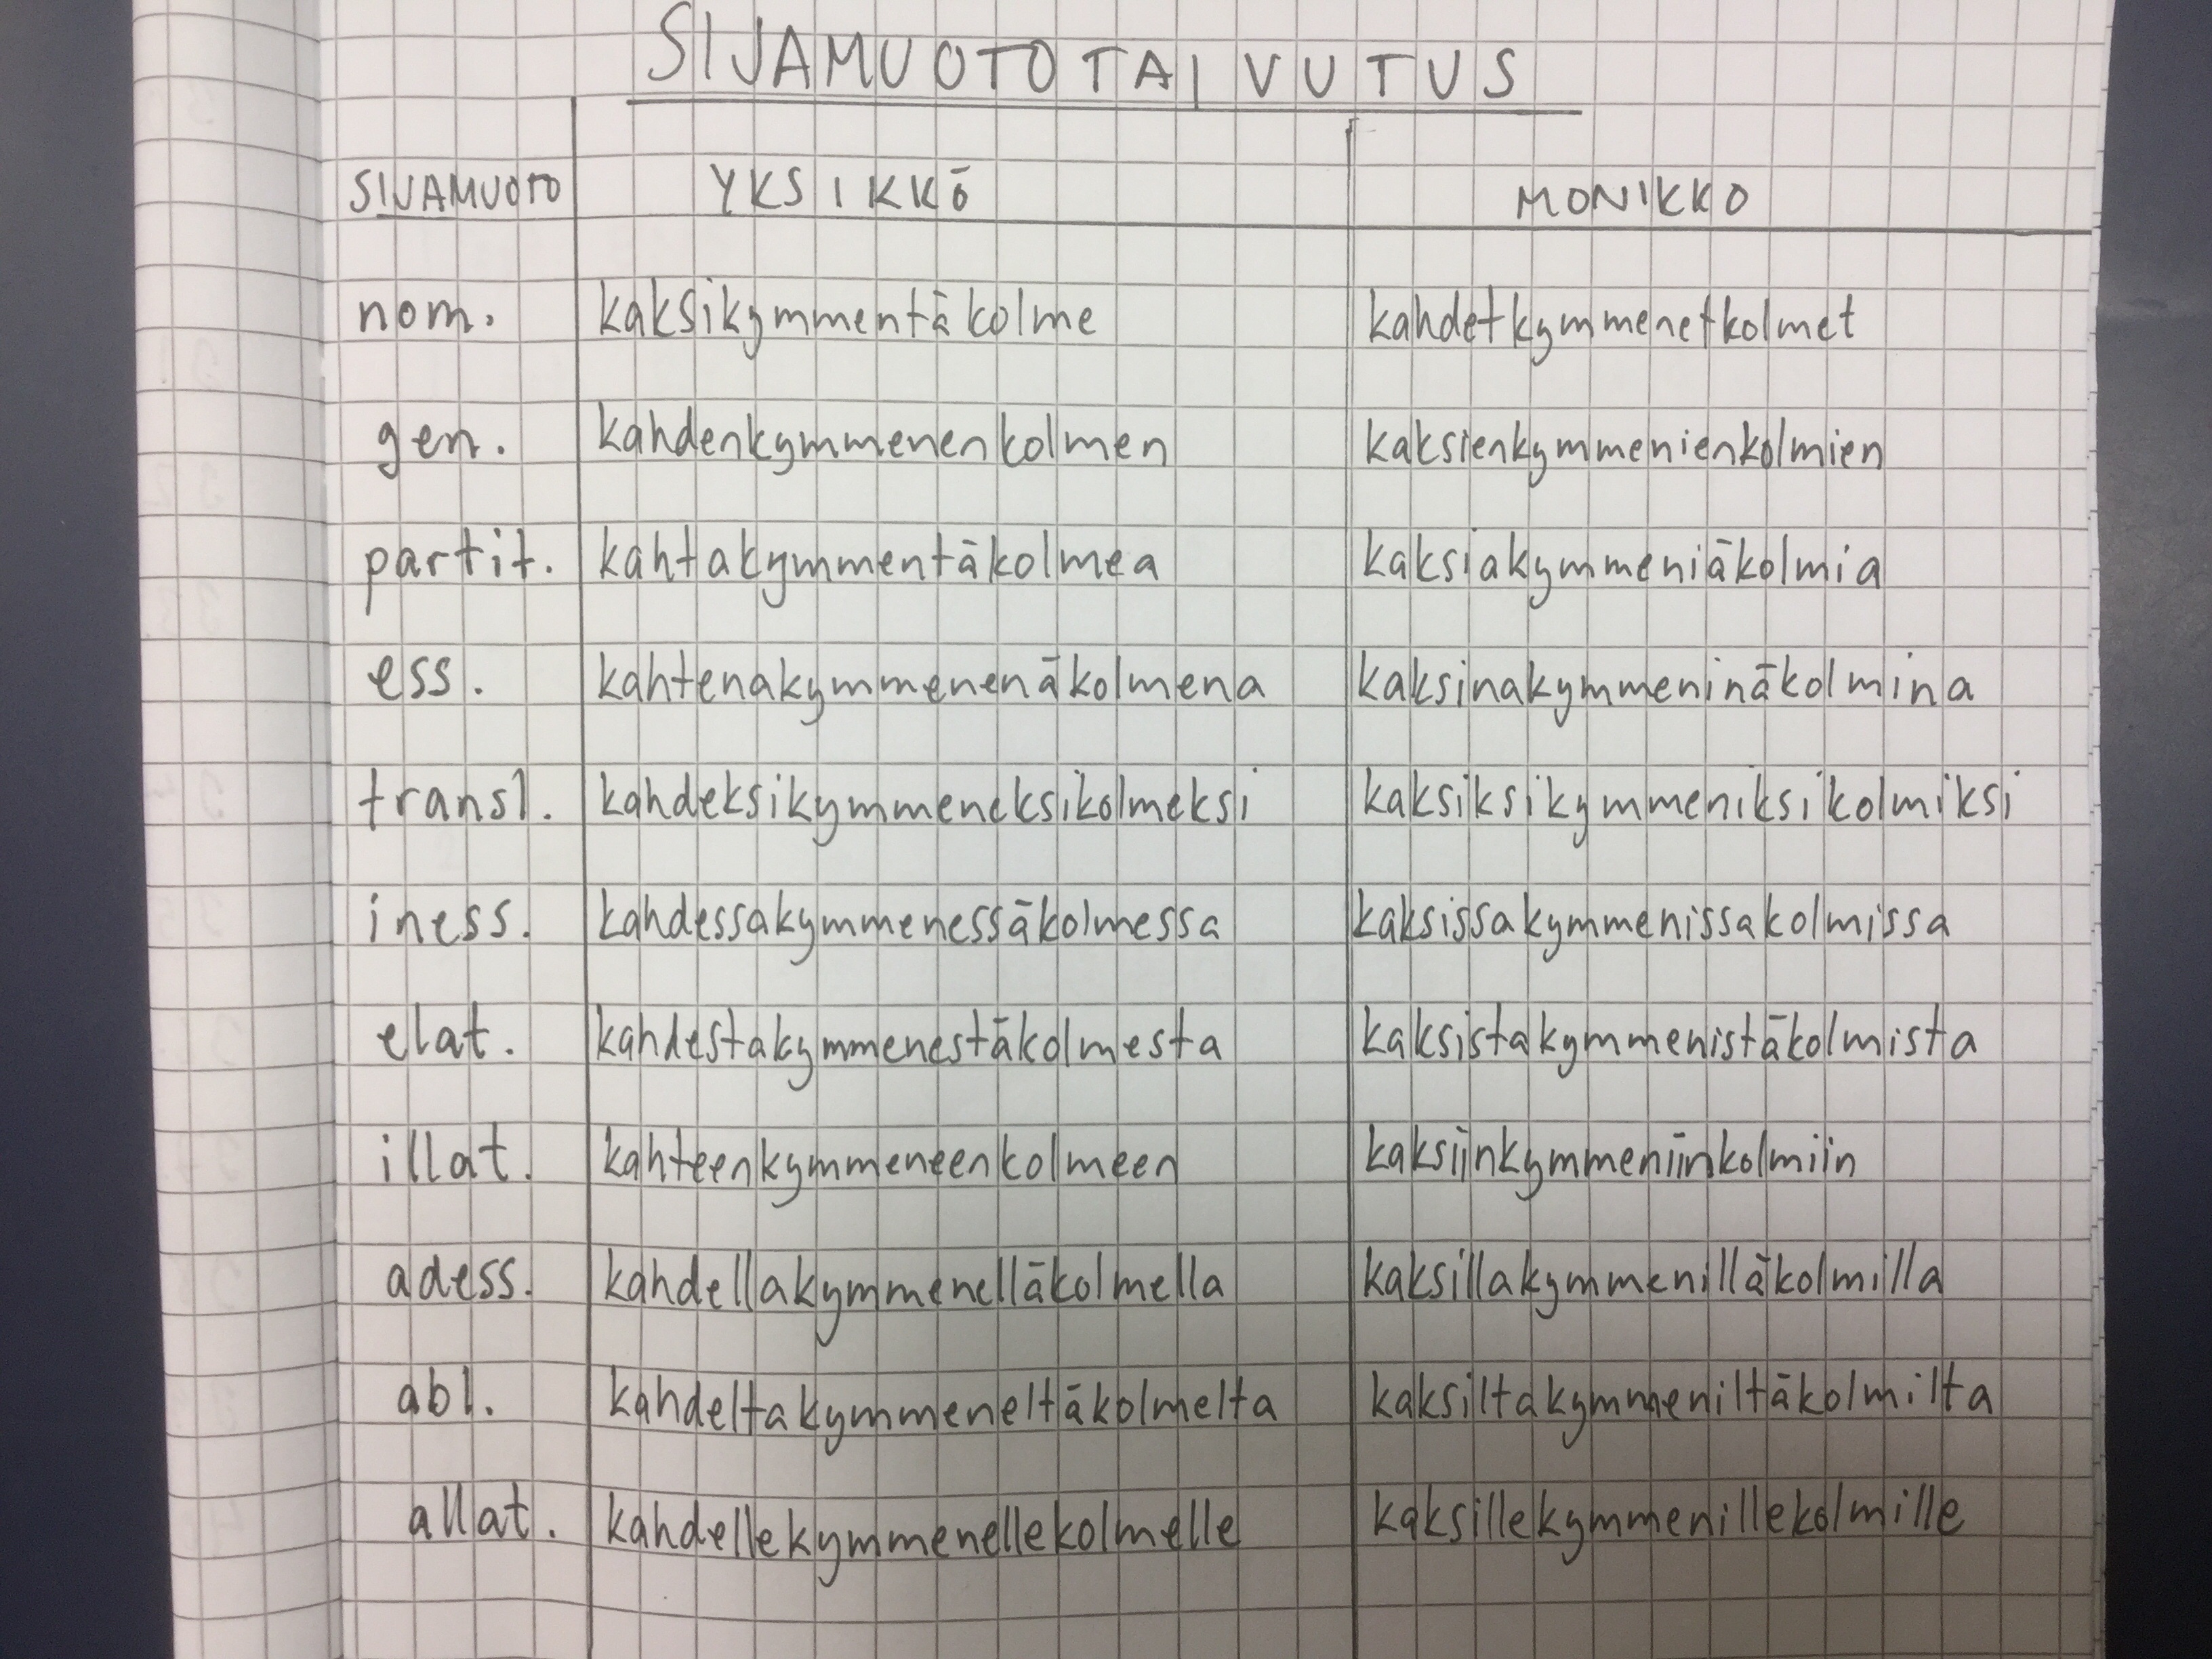 SIJAMUOTOTAIVUTUS
SIJAMUOTO YKSIKKÖ MONIKKO
nom. kaksikymmentäkolme kahdetkymmenetkolmet
gen. kahdenkymmenenkolmen kaksienkymmenienkolmien
partit. kahtakymmentäkolmea kaksiakymmeniäkolmia
ess. kahtenakymmenenäkolmena kaksinakymmeninäkolmina
transl. kahdeksikymmeneksikolmeksi kaksiksikymmeniksikolmiksi
iness. kahdessakymmenessäkolmessa kaksissakymmenissakolmissa
elat. kahdestakymmenestäkolmesta kaksistakymmenistäkolmista
illat. kahteenkymmeneenkolmeen kaksiinkymmeniinkolmiin
adess. kahdellakymmenelläkolmella kaksillakymmenilläkolmilla
abl. kahdeltakymmeneltäkolmelta kaksiltakymmeniltäkolmilta
allat. kahdellekymmenellekolmelle kaksillekymmenillekolmille